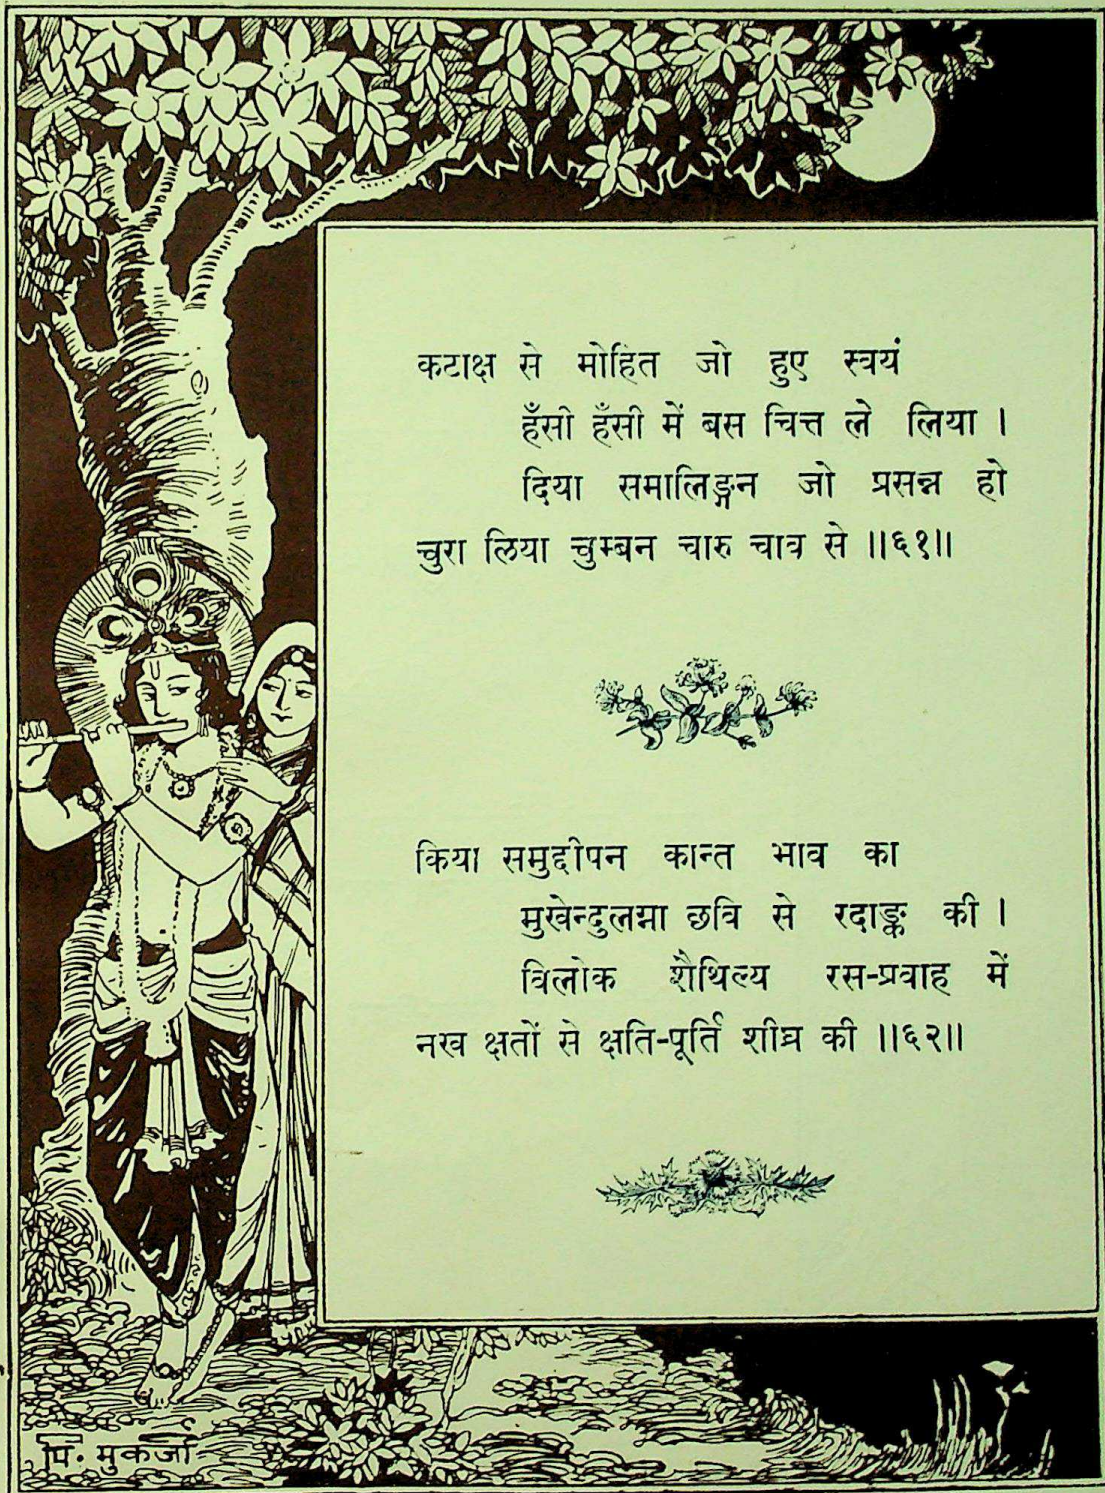 कटाक्ष से मोहित जो हुए स्वयं
हँसी हँसी में बस चित्त ले लिया ।
दिया समालिङ्गन जो प्रसन्न हो
चुरा लिया चुम्बन चारु चाव से ॥६१॥
किया समुद्दीपन कान्त भाव का
मुखेन्दुलग्ना छवि से रदाङ्क की ।
विलोक शैथिल्य रस-प्रवाह में
नख क्षतों से क्षति-पूर्ति शीघ्र की ॥६२॥
पि. मुकर्जी